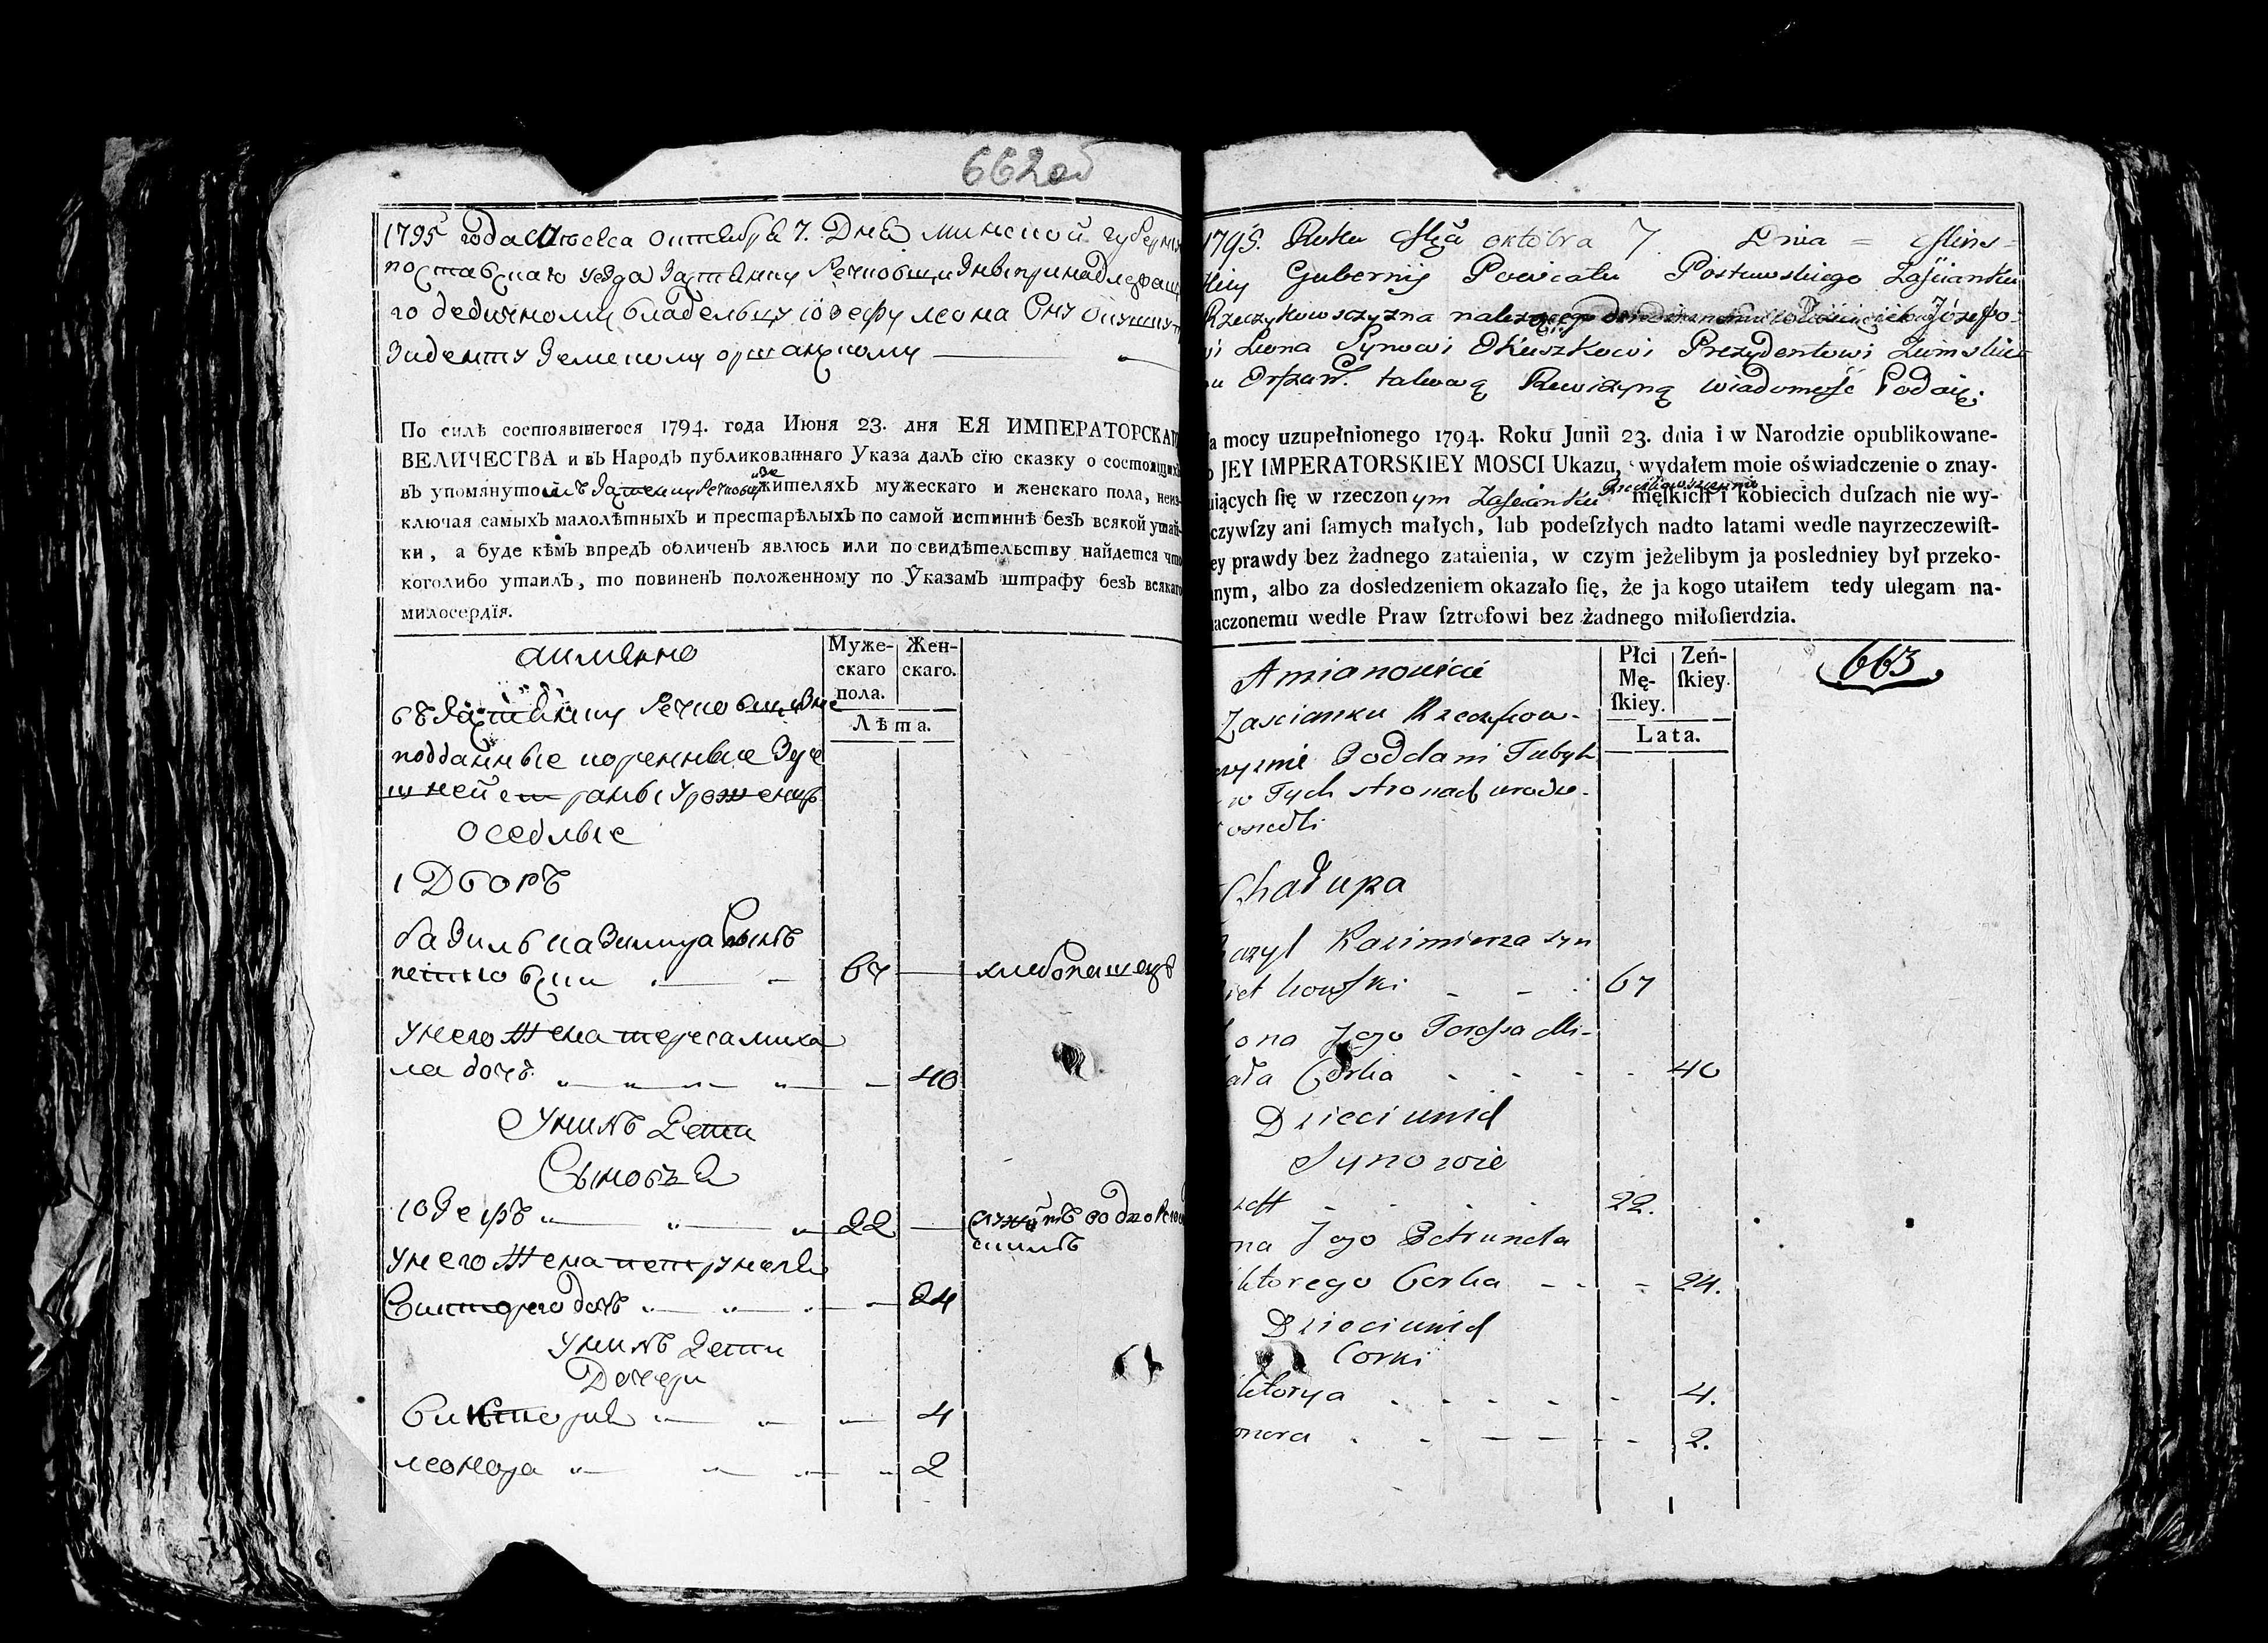 662 об
1795 года Месеца октебра 7. Дня минской губерни
поставскаго уезда застенку Речковщизны принадлежащ
го дедичному владельцу иозефу леона Сну
зиденту земскому оршанскому
По силѣ состоявшегося 1794. года Июня 23. дня ЕЯ ИМПЕРАТОРСКАГ
ВЕЛИЧЕСТВА и въ Народъ публикованнаго Указа далъ сїю сказку о состоящихъ
въ упомянутомъ застенку Речковщизне жителяхъ мужескаго и женскаго пола, неиз-
ключая самыхъ малолѣтныхъ и престарѣлыхъ по самой истиннѣ безъ всякой утай-
ки, а буде кѣмъ впредъ обличенъ явлюсь или по свидѣтельству найдется что
коголибо утаилъ, то повиненъ положенному по Указамъ штрафу безъ всякаго
милосердїя.
аимянно
Муже-скаго пола. Жен-скаго.
Лѣта.
въ застенку Речковщизне
подданные коренные зде
шней страны уроженцы
оседлые
1 Дворъ
базиль казимира Сынъ
петковски 67 хлебопашецъ
у него жена тереса миха
ла дочь 40
У нихъ Дети
Сыновья
иозефъ 22
у него жена петрунеля
викторего дочь 24
у нихъ Дети
Дочери
виктория 4
леонора 2
1795. Roku Mca októbra 7 Dnia = Mins=
kiey Gubernij Powiatu Postawskiego Zaścianku
Rzeczykowsczyzna Józefo-
wi Leona Synowi Okuszkowi Prezydentowi Zemskie
mu Orszań. takową Rewizyną wiadomość Podaię.
a mocy uzupełnionego 1794. Roku Junii 23. dnia i w Narodzie opublikowane-
o JEY IMPERATORSKIEY MOSCI Ukazu, wydałem moie oświadczenie o znay-
uiących ſię w rzeczonym Zaścianku męſkich i kobiecich duſzach nie wy-
czywſzy ani ſamych małych, lub podeſzłych nadto latami wedle nayrzeczewiſt-
ey prawdy bez żadnego zataienia, w czym jeżelibym ja posledniey był przeko-
anym, albo za dosledzeniem okazało ſię, że ja kogo utaiłem tedy ulegam na-
aczonemu wedle Praw ſztrofowi bez żadnego miłoſierdzia.
Amianowicie
Płci Mę-ſkiey. Zeń-ſkiey.
Lata.
663
Zascianku Rzeczykow-
czyznie Poddani Tubyl
w Tych stronach urodze-
osiedli
Chałupa
azyl Kazimierza syn
iet kowski 67
ona Jego Teressa Mi-
ała Corka 40
Dzieci unich
Synowie
zeff 22.
na Jego Petrunela
iktorego Corka 24.
Dzieci unich
Corki
iktorya 4.
onora 2.